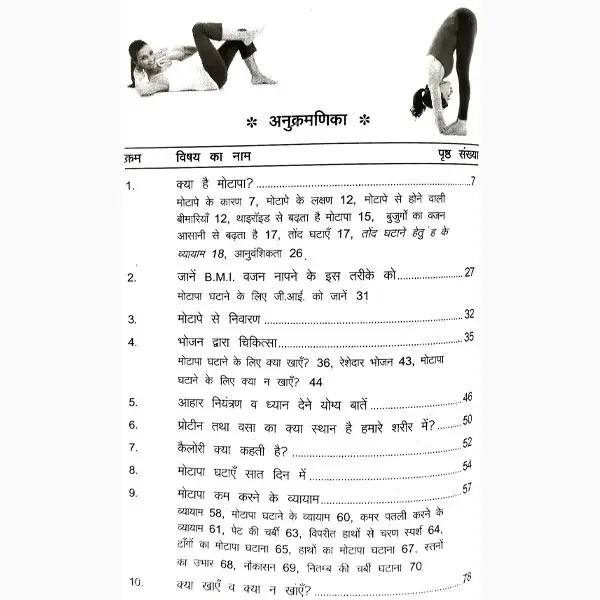 * अनुक्रमणिका *
क्रम विषय का नाम पृष्ठ संख्या
1. क्या है मोटापा? 7
मोटापे के कारण 7, मोटापे के लक्षण 12, मोटापे से होने वाली
बीमारियाँ 12, थाइरॉइड से बढ़ता है मोटापा 15, बुजुर्गों का वजन
आसानी से बढ़ता है 17, तोंद घटाएँ 17, तोंद घटाने हेतु ह के
व्यायाम 18, आनुवंशिकता 26
2. जानें B.M.I. वजन नापने के इस तरीके को 27
मोटापा घटाने के लिए जी.आई. को जानें 31
3. मोटापे से निवारण 32
4. भोजन द्वारा चिकित्सा 35
मोटापा घटाने के लिए क्या खाएँ? 36, रेशेदार भोजन 43, मोटापा
घटाने के लिए क्या न खाएँ? 44
5. आहार नियंत्रण व ध्यान देने योग्य बातें 46
6. प्रोटीन तथा वसा का क्या स्थान है हमारे शरीर में? 50
7. कैलोरी क्या कहती है? 52
8. मोटापा घटाएँ सात दिन में 54
9. मोटापा कम करने के व्यायाम 57
व्यायाम 58, मोटापा घटाने के व्यायाम 60, कमर पतली करने के
व्यायाम 61, पेट की चर्बी 63, विपरीत हाथों से चरण स्पर्श 64,
टाँगों का मोटापा घटाना 65, हाथों का मोटापा घटाना 67, स्तनों
का उभार 68, नौकासन 69, नितम्ब की चर्बी घटाना 70
10. क्या खाएँ व क्या न खांएँ? 78